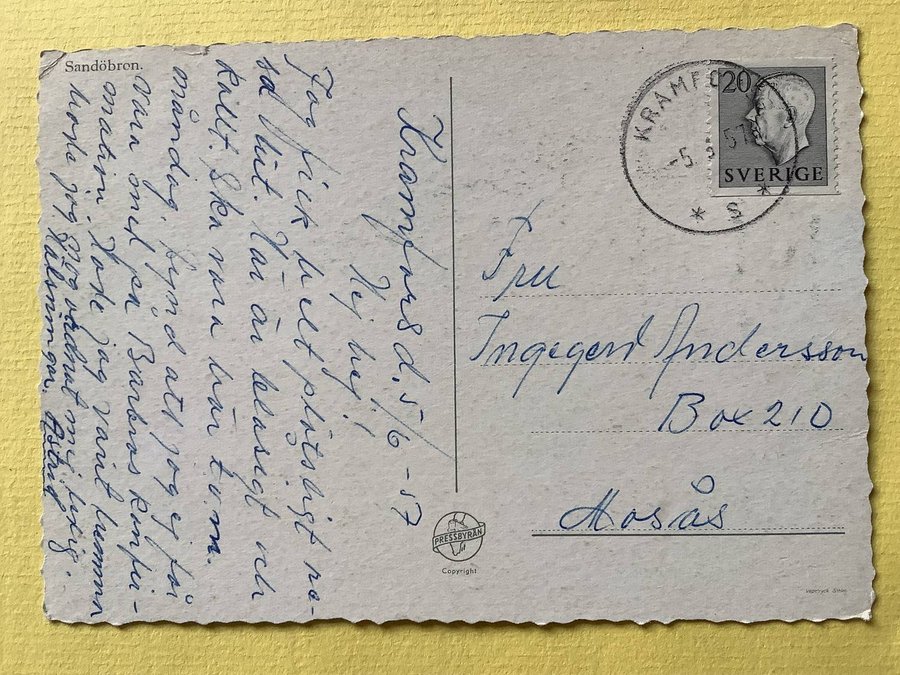 Sandöbron.
Kramfors d. 5/6 - 57
Hej hej!
Jag fick helt plötsligt re-
sa hit. Här är blåsigt och
kallt. Ska vara här t.o.m.
måndag. Synd att jag ej får
vara med på Barbros konfir-
mation. Hade jag varit hemma
hade jag nog ordnat mig ledig.
Hälsningar. Astrid
KRAMFO
-5. 57
* S *
20
SVERIGE
Fru
Ingegerd Andersson
Box 210
Mosås
PRESSBYRÅN
Copyright